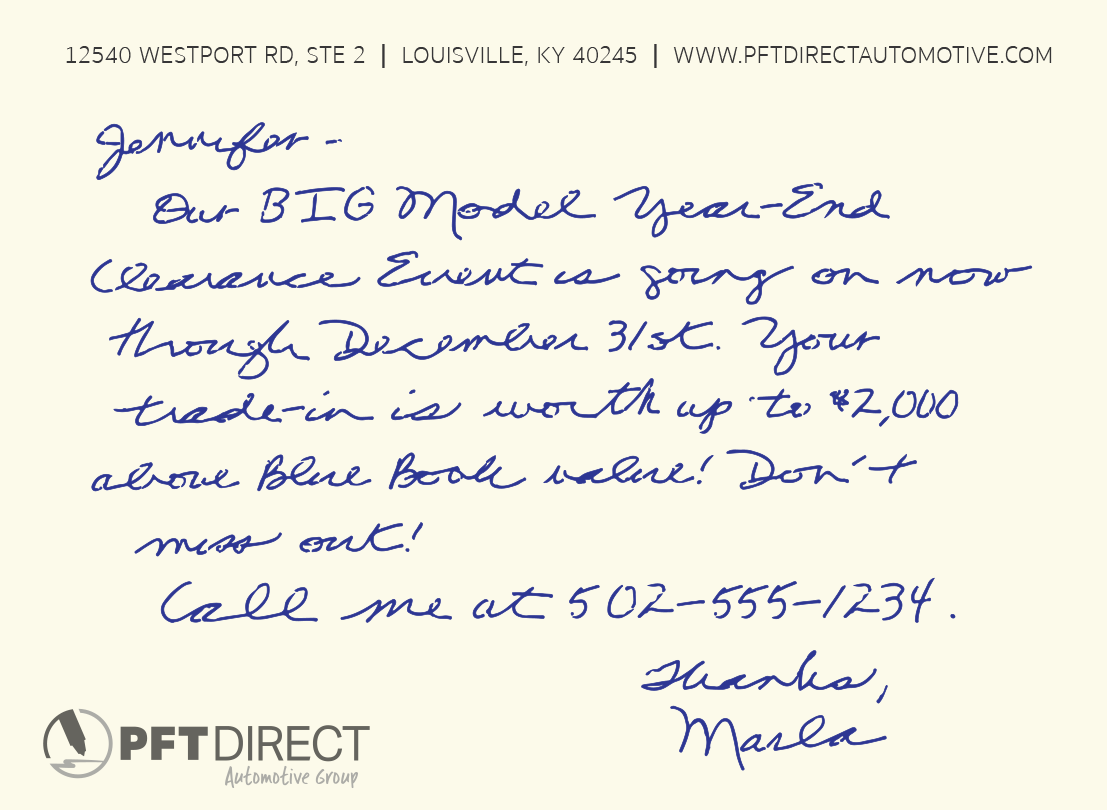 12540 WESTPORT RD, STE 2 | LOUISVILLE, KY 40245 | WWW.PFTDIRECTAUTOMOTIVE.COM
Jennifer -
Our BIG Model Year-End
Clearance Event is going on now
through December 31st. Your
trade-in is worth up to $2,000
above Blue Book value! Don't
miss out!
Call me at 502-555-1234.
Thanks,
Marla
PFT DIRECT
Automotive Group